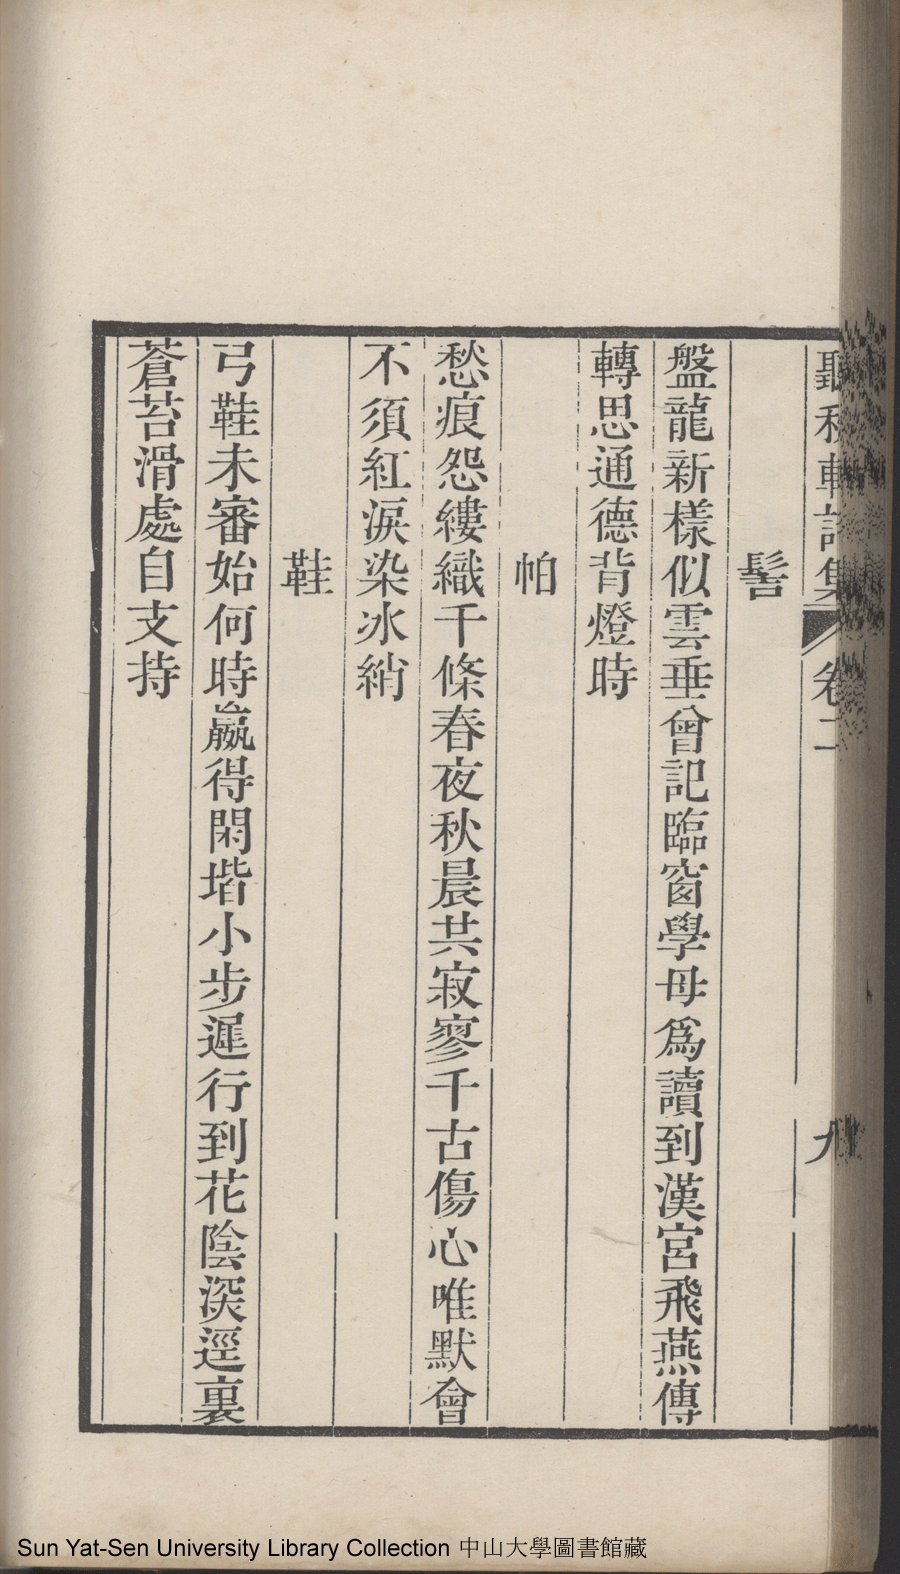 聽秋軒詩集 卷二 九
髻
盤龍新樣似雲垂曾記臨窗學母爲讀到漢宮飛燕傳
轉思通德背燈時
帕
愁痕怨縷織千條春夜秋晨共寂寥千古傷心唯默會
不須紅淚染冰綃
鞋
弓鞋未審始何時嬴得閑堦小步遲行到花陰深逕裏
蒼苔滑處自支持
Sun Yat-Sen University Library Collection 中山大學圖書館藏